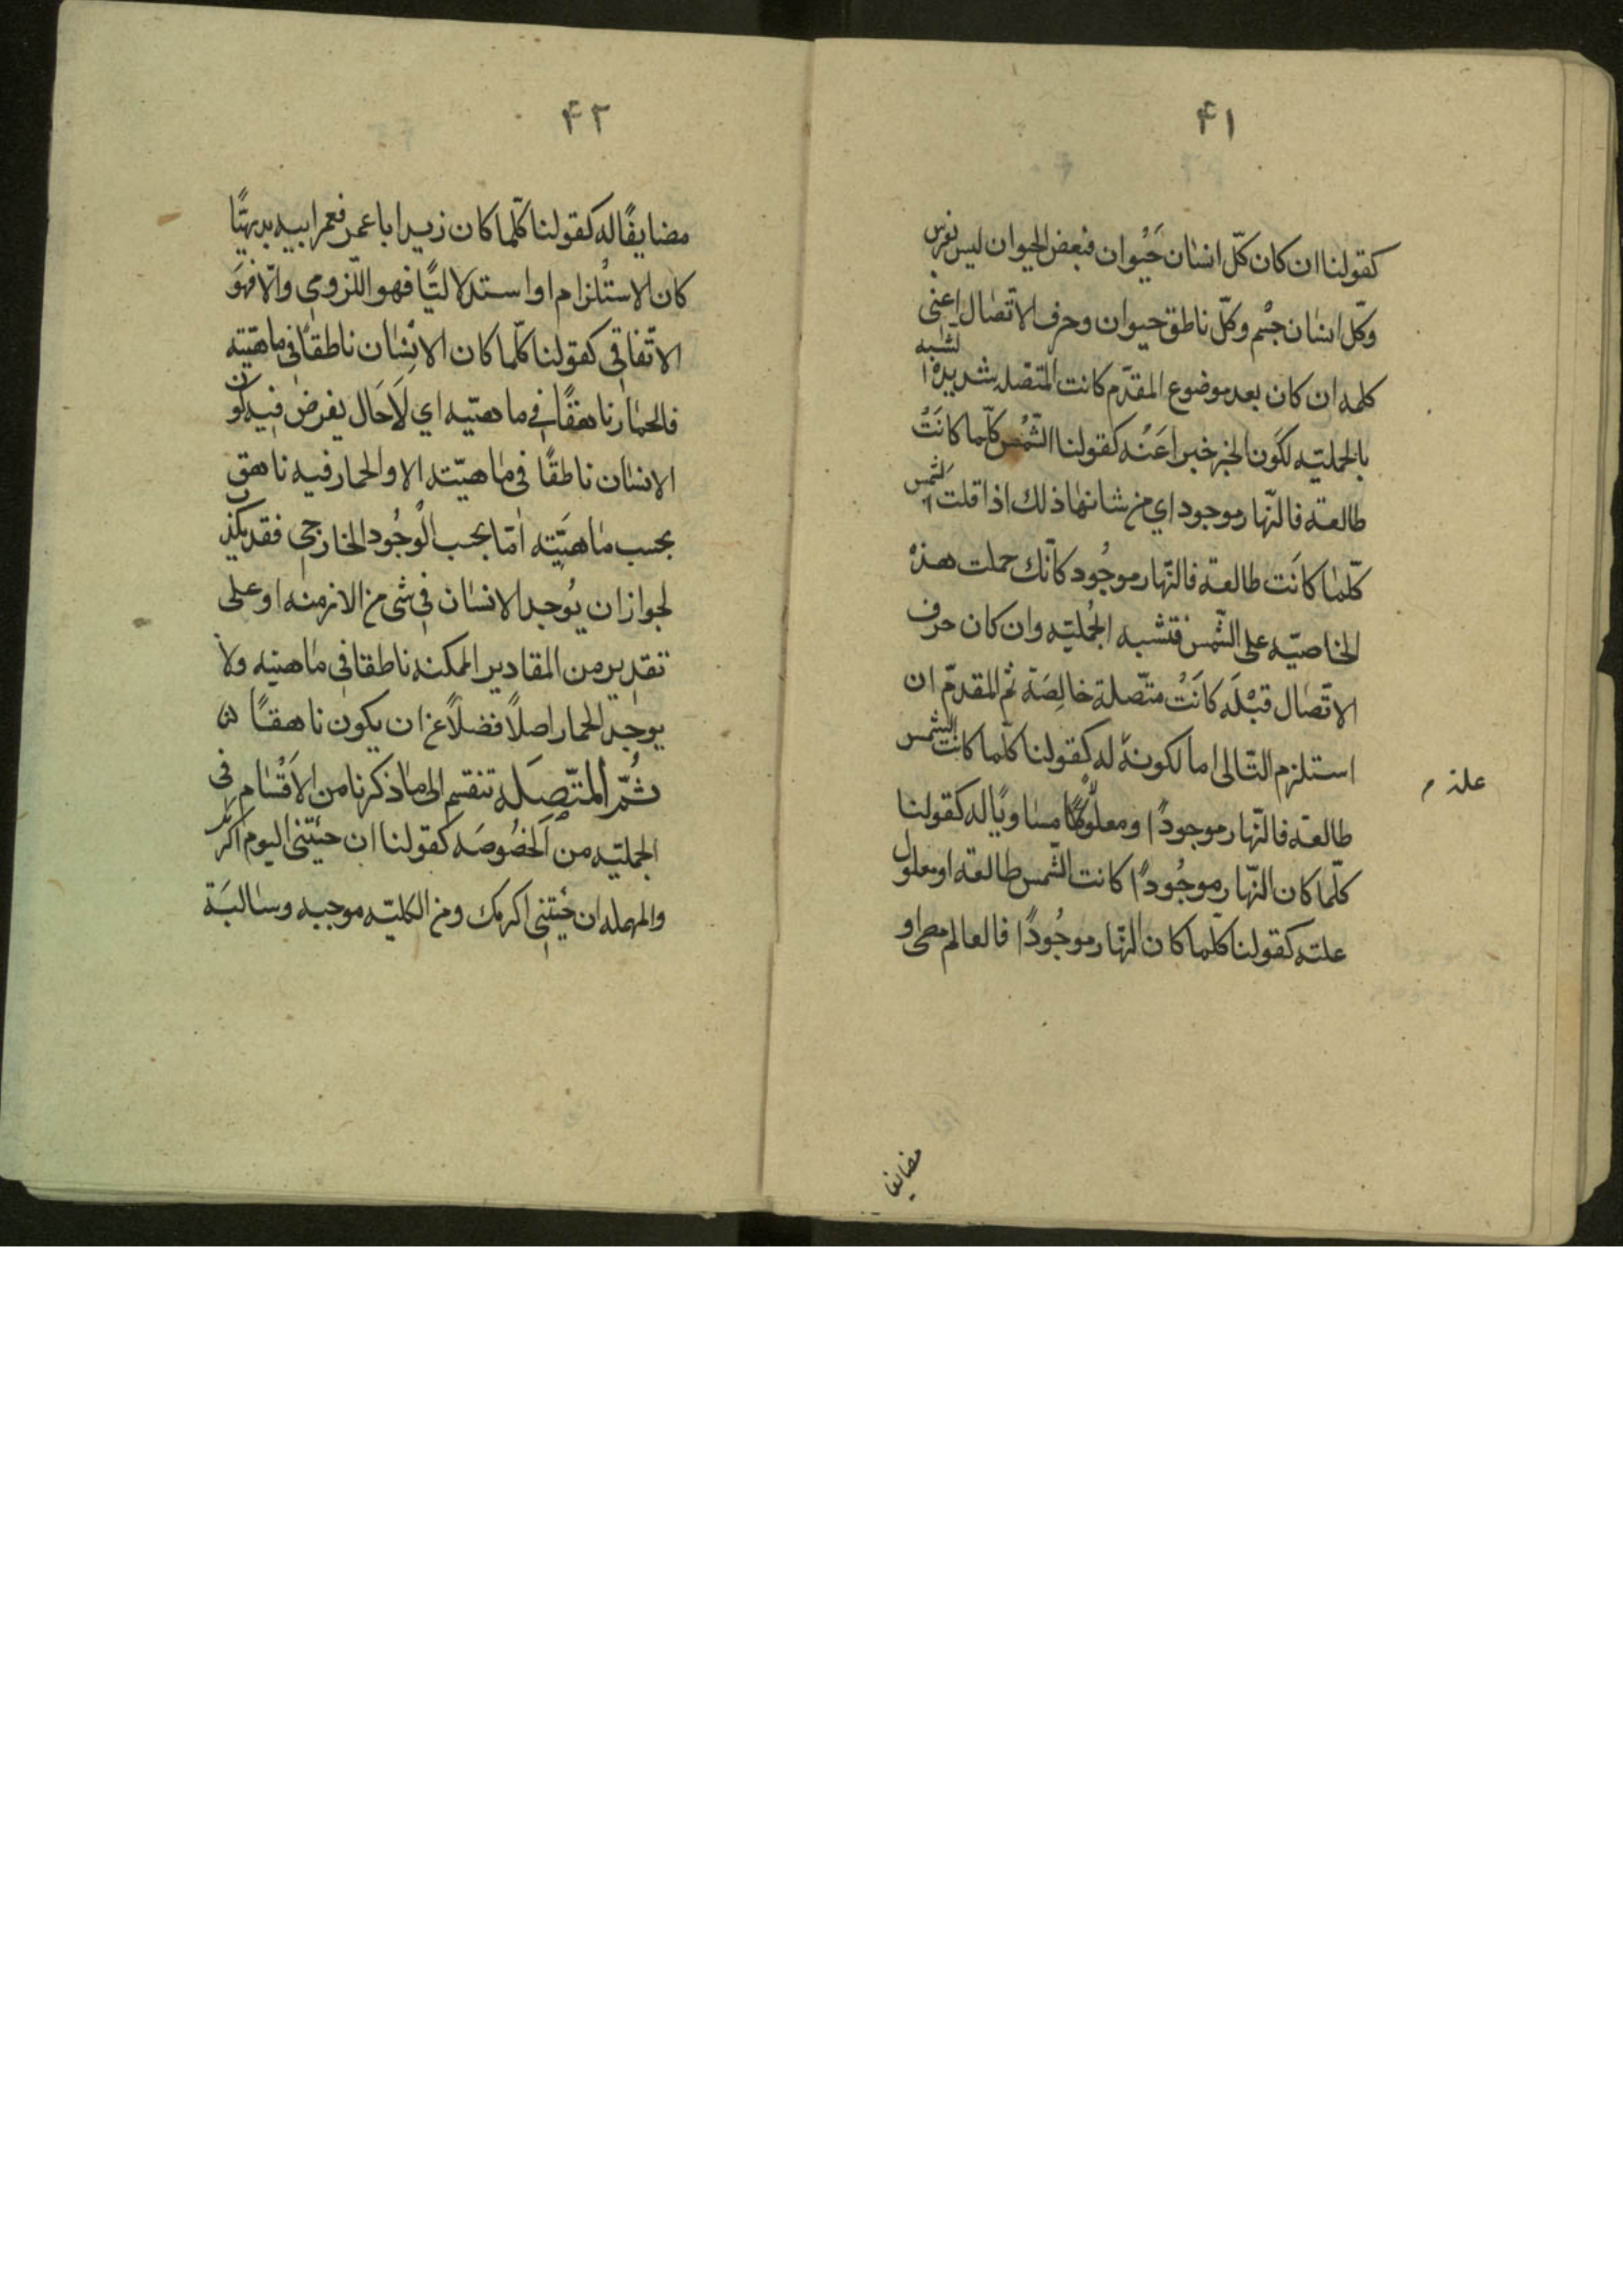 ۴۱
كقولنا ان كان كلّ انسٰان حَيْوان فبعض الحيوان ليس بفرس
وكلّ انسٰان جسْم وكلّ ناطق حيوان وحرف الاتّصٰال اعنى
كلمه ان كان بعد موضوع المقدّم كانت المتصله شديدة الشبه
بالحمليّه لكَون الخبر خبرا عَنْه كقولنا الشّمْس كلّما كانَتْ
طالعة فالنّهار موجود اي من شانهٰا ذلك اذا قلت الشّمس
كلّمٰا كانَت طالعة فالنّهار موجُود كانّك حملت هذه
الخاصيّه على الشّمس فتشبه الحمليّه وان كان حرف
الاتّصٰال قبْلَه كانَتْ متّصلة خالِصَة ثم المقدمّ ان
استلزم التّالى اما لكونه له كقولنا كلّما كانت الشّمس
علة م
طالعة فالنّهار موجودًا ومعلولًا مسٰاويًا له كقولنا
كلّما كان النّهار موجُودًا كانت الشّمس طالعة او معلول
علته كقولنا كلّما كان النّهار موجُودًا فالعالم مضى او
مضايفا
۴۲
مضايفًا له كقولنا كلّما كان زيد ابا عمر فعمر ابيه بديهيًّا
كان الاستْلزام او استدلاليًّا فهو اللّزومي والّا فهوَ
الاتّفاقى كقولنا كلّما كان الانْسٰان ناطقًا فى ماهيّته
فالحمٰار ناهقًا في ماهيّه اي لَاحَال يفرض فيه كون
الانسٰان ناطقًا فى مٰاهيّته الا والحمار فيه ناهق
بحسب مٰاهيَّته امّا بحسب الوُجُود الخارجي فقد يكذب
لجواز ان يُوجد الانسٰان في شى من الازمنه او على
تقدير من المقادير الممكنه ناطقا فى مٰاهيته ولا
يوجد الحمار اصلًا فضلًا عن ان يكون ناهقًا
ثُمّ المتّصِلَة تنقسم الى مٰا ذكرنا من الاَقْسٰام فى
الحمليّه من الَخصُوصَه كقولنا ان جئتنى اليوم اكرمك
والمهمله ان جئتنى اكرمك ومن الكليّه موجبه وسٰالبَة